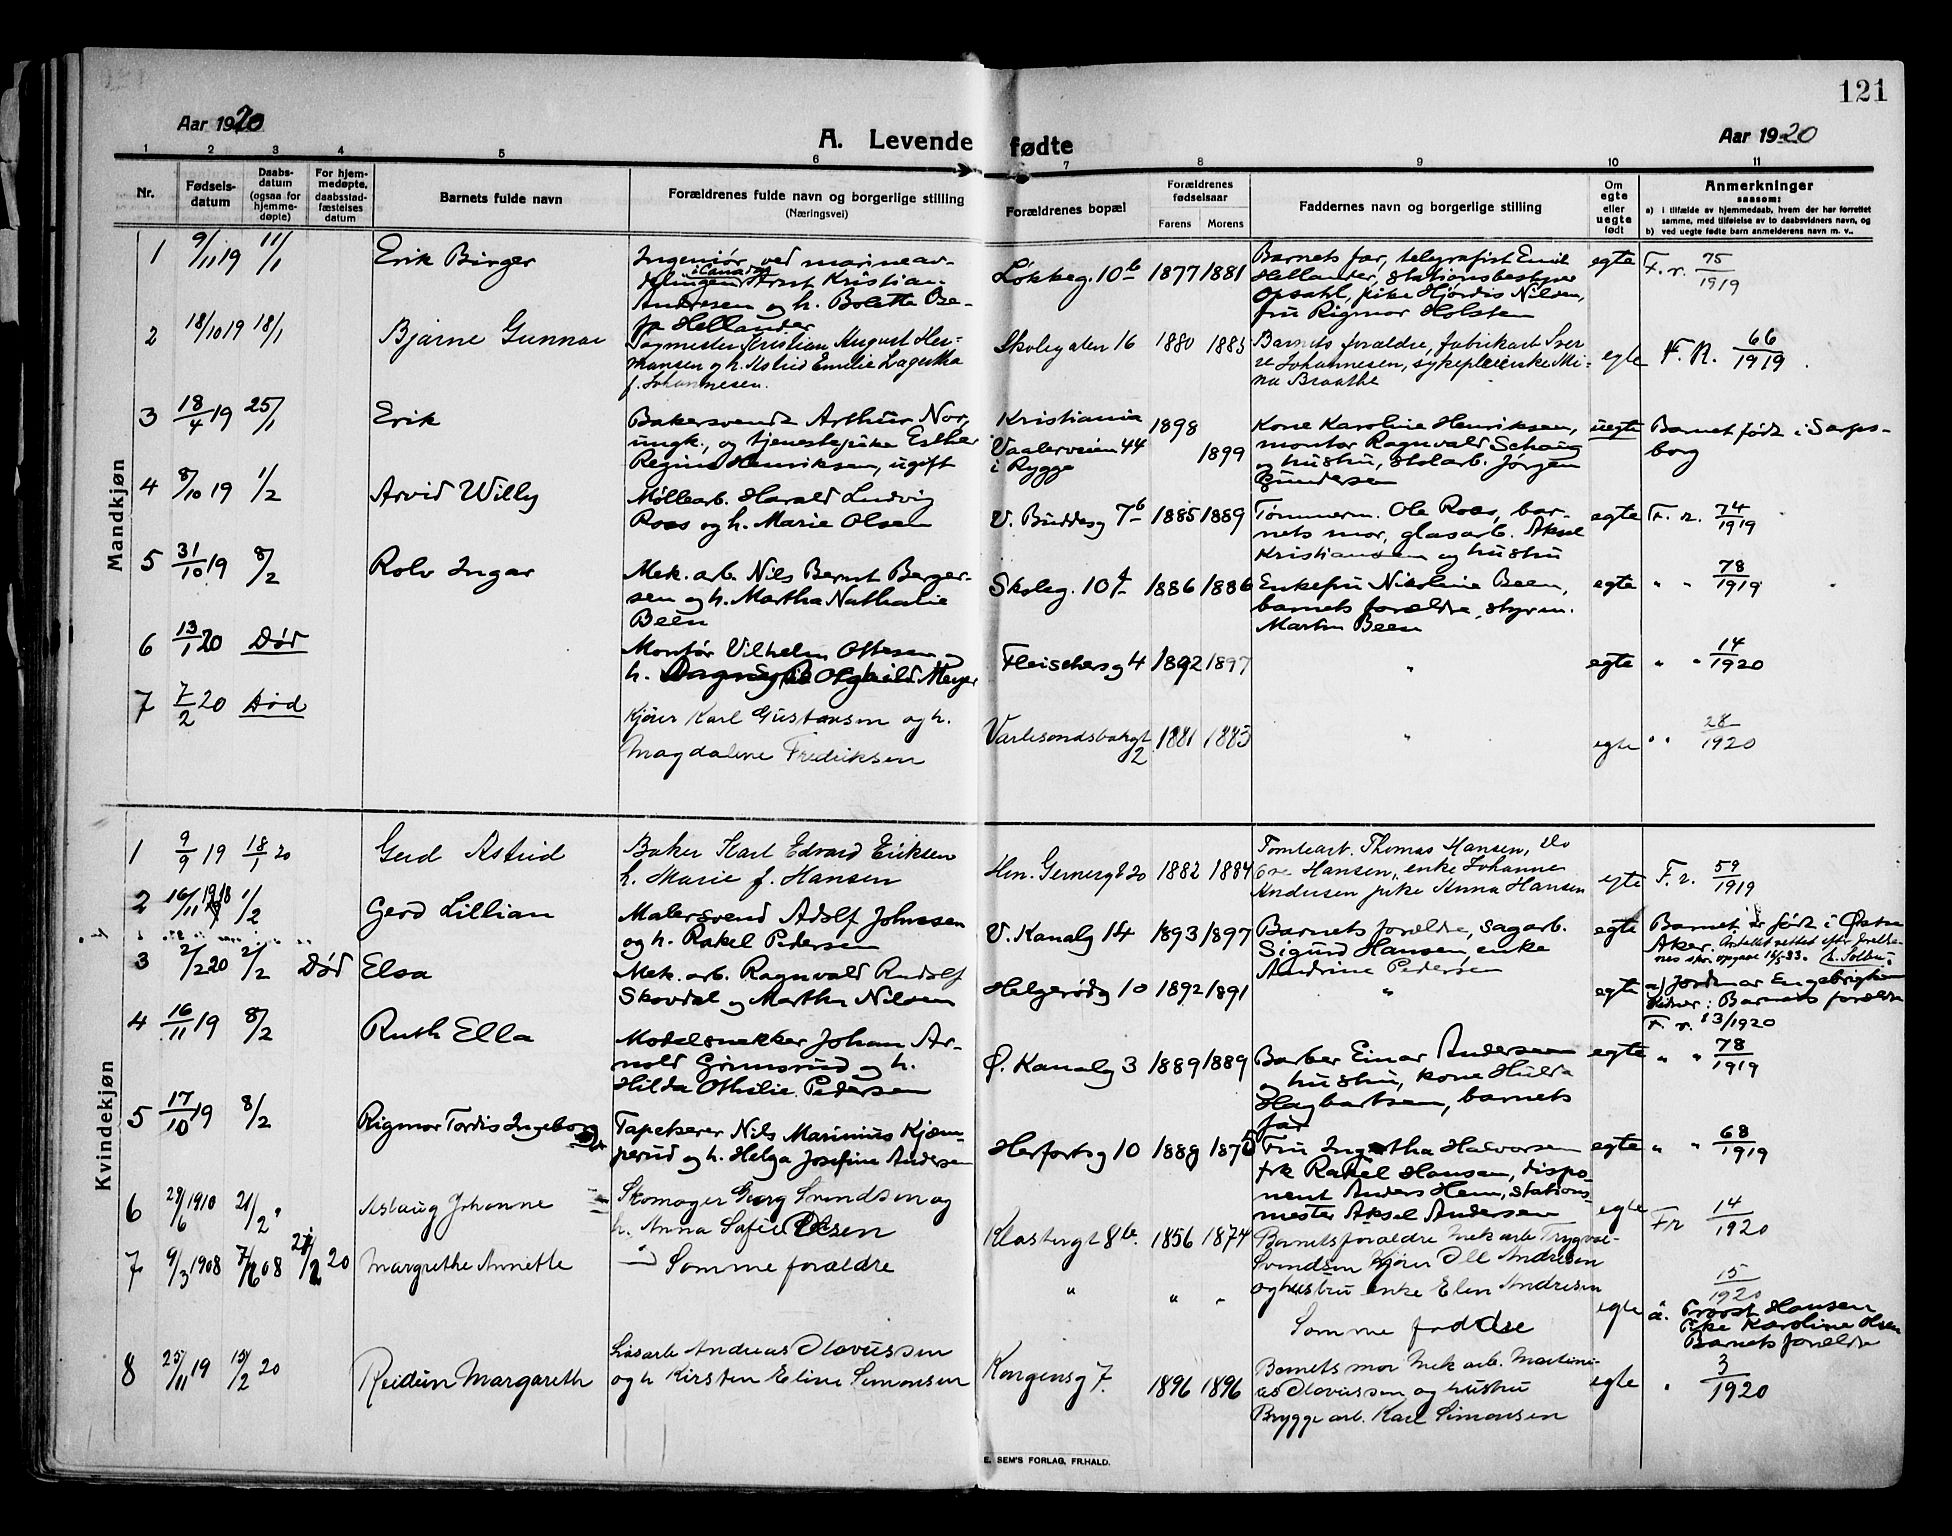 121
Aar 1920
A. Levende fødte
Aar 1920
1 2 3 4 5 6 7 8 9 10 11
Nr.
Fødsels-
datum
Daabs-
datum
(ogsaa for
hjemme-
døpte)
For hjem-
medøpte,
daabsstad-
fæstelses
datum
Barnets fulde navn
Forældrenes fulde navn og borgerlige stilling
(Næringsvei)
Forældrenes bopæl
Forældrenes
fødselsaar
Farens Morens
Faddernes navn og borgerlige stilling
Om
egte
eller
uegte
født
Anmerkninger
saasom:
a) i tilfælde av hjemmedaab, hvem der har forrettet
samme, med tilføielse av to daabsvidners navn, og
b) ved uegte fødte barn anmelderens navn m. v.
Mandkjøn
1 9/11 19 11/1 Erik Birger
Ingeniør ved marineav-
i Canada
Arnt Kristian
Andresen og h. Bolette Ose-
fa Hellander
Løkkeg. 10b 1877 1881
Barnets far, telegrafist Emil
Hellander, stationsbestyrer
Opsahl, pike Hjørdis Nilsen,
fru Rigmor Holsten
egte F. r. 75/1919
2 18/10 19 18/1 Bjarne Gunnar
Kristian August Her-
mansen og h. Astrid Emilie Lagertha
f. Johannesen.
Skolegaten 16 1880 1885
Barnets forældre, fabrikarb. Sver-
re Johannesen, sykepleierske Mi-
na Braathe
egte F. R. 66/1919.
3 18/4 19 25/1 Erik
Bakersvend Arthur Nor,
ungk., og tjenestepike Esther
Regine Henriksen, ugift
Kristiania 1898
Vaalerveien 44
i Rygge 1899
Kone Karoline Henriksen,
montør Ragnvald Schaug
og hustru, stolarb. Jørgen
Gundersen
uegte Barnet født i Sarps-
borg
4 8/10 19 1/2 Arvid Willy
Møllearb. Harald Ludvig
Roos og h. Marie Olsen
V. Buddesg 7b 1885 1889
Tømmerm. Ole Roos, bar-
nets mor, glasarb. Aksel
Kristiansen og hustru
egte F. r. 74/1919
5 31/10 19 8/2 Rolv Ingar
Mek. arb. Nils Bernt Berger-
sen og h. Martha Nathalie
Been
Skoleg. 10A 1886 1886
Enkefru Nikoline Been,
barnets forældre, styrm.
Martin Been
egte " " 78/1919
6 13/1 20 Død
Montør Vilhelm Ottesen og
h. Olghild Meyer
Fleischersg 4 1892 1897
" egte " " 14/1920
7 7/2 20 Død
Kjører Karl Gustavsen og h.
Magdalene Fredriksen
Varlesandsbakgt
2 1881 1883
" egte " " 28/1920
Kvindekjøn
1 9/9 19 18/1 20 Gerd Astrid
Baker Karl Edvard Eriksen
h. Marie f. Hansen
Hen. Gernersgt 20 1882 1884
Tomtearb. Thomas Hansen,
Hansen, enke Johanne
Andersen pike Anna Hansen
egte F. r. 59/1919
2 16/11 1918 1/2 Gerd Lillian
Malersvend Adolf Johnsen
og h. Rakel Pedersen
V. Kanalg 14 1893 1897
Barnets forældre, sagarb.
Sigurd Hansen, enke
Andrine Pedersen
egte Barnet er født i Østre
Aker.
3 2/2 20 2/2 Død Elsa
Mek. arb. Ragnvald Rudolf
Skovdal og Martha Nilsen
Helgerødg 10 1892 1891
" egte a) Jordmor Engebrigtsen
Vidner: Barnets forældre
F. r. 13/1920
4 16/11 19 8/2 Ruth Ella
Modelsnekker Johan Ar-
nold Grimsrud og h.
Hilda Othilie Pedersen
Ø. Kanalg 3 1889 1889
Barber Einar Andersen
og hustru, kone Hulda
Hagbartsen, barnets
far
egte " " 78/1919
5 17/10 19 8/2 Rigmor Tordis Ingeborg
Tapetserer Nils Marinius Kjem-
perud og h. Helga Josefine Andersen
Herfortsg 10 1889 1875
Fru Halvorsen
frk Rakel Hansen, dispo-
nent Anders Hem, stations-
mester Aksel Andersen
egte " " 68/1919
6 29/6 1910 21/2 " Aslaug Johanne
Skomager Georg Svindsen og
h. Anna Sofie Olsen
Klostergt 8b. 1856 1874
Barnets forældre Mek arb Trygve
Svindsen Kjører Andresen
og hustru enke Elen Andresen
egte Fr 14/1920
7 9/3 1908 7/6 08 21/2 20 Margrethe Annette
Samme forældre
" " "
Samme faddere
egte 15/1920
a. Provst Hansen
Pike Karoline Olsen
Barnets forældre
8 25/11 19 15/2 20 Reidun Margareth
Løsarb Andreas Olavussen
og h Kirsten Eline Simonsen
Kongensg 7. 1896 1896
Barnets mor Mek arb. Martini-
us Olavussen og hustru
Brygge arb. Karl Simonsen
egte " 3/1920
E. SEM'S FORLAG, FR.HALD.